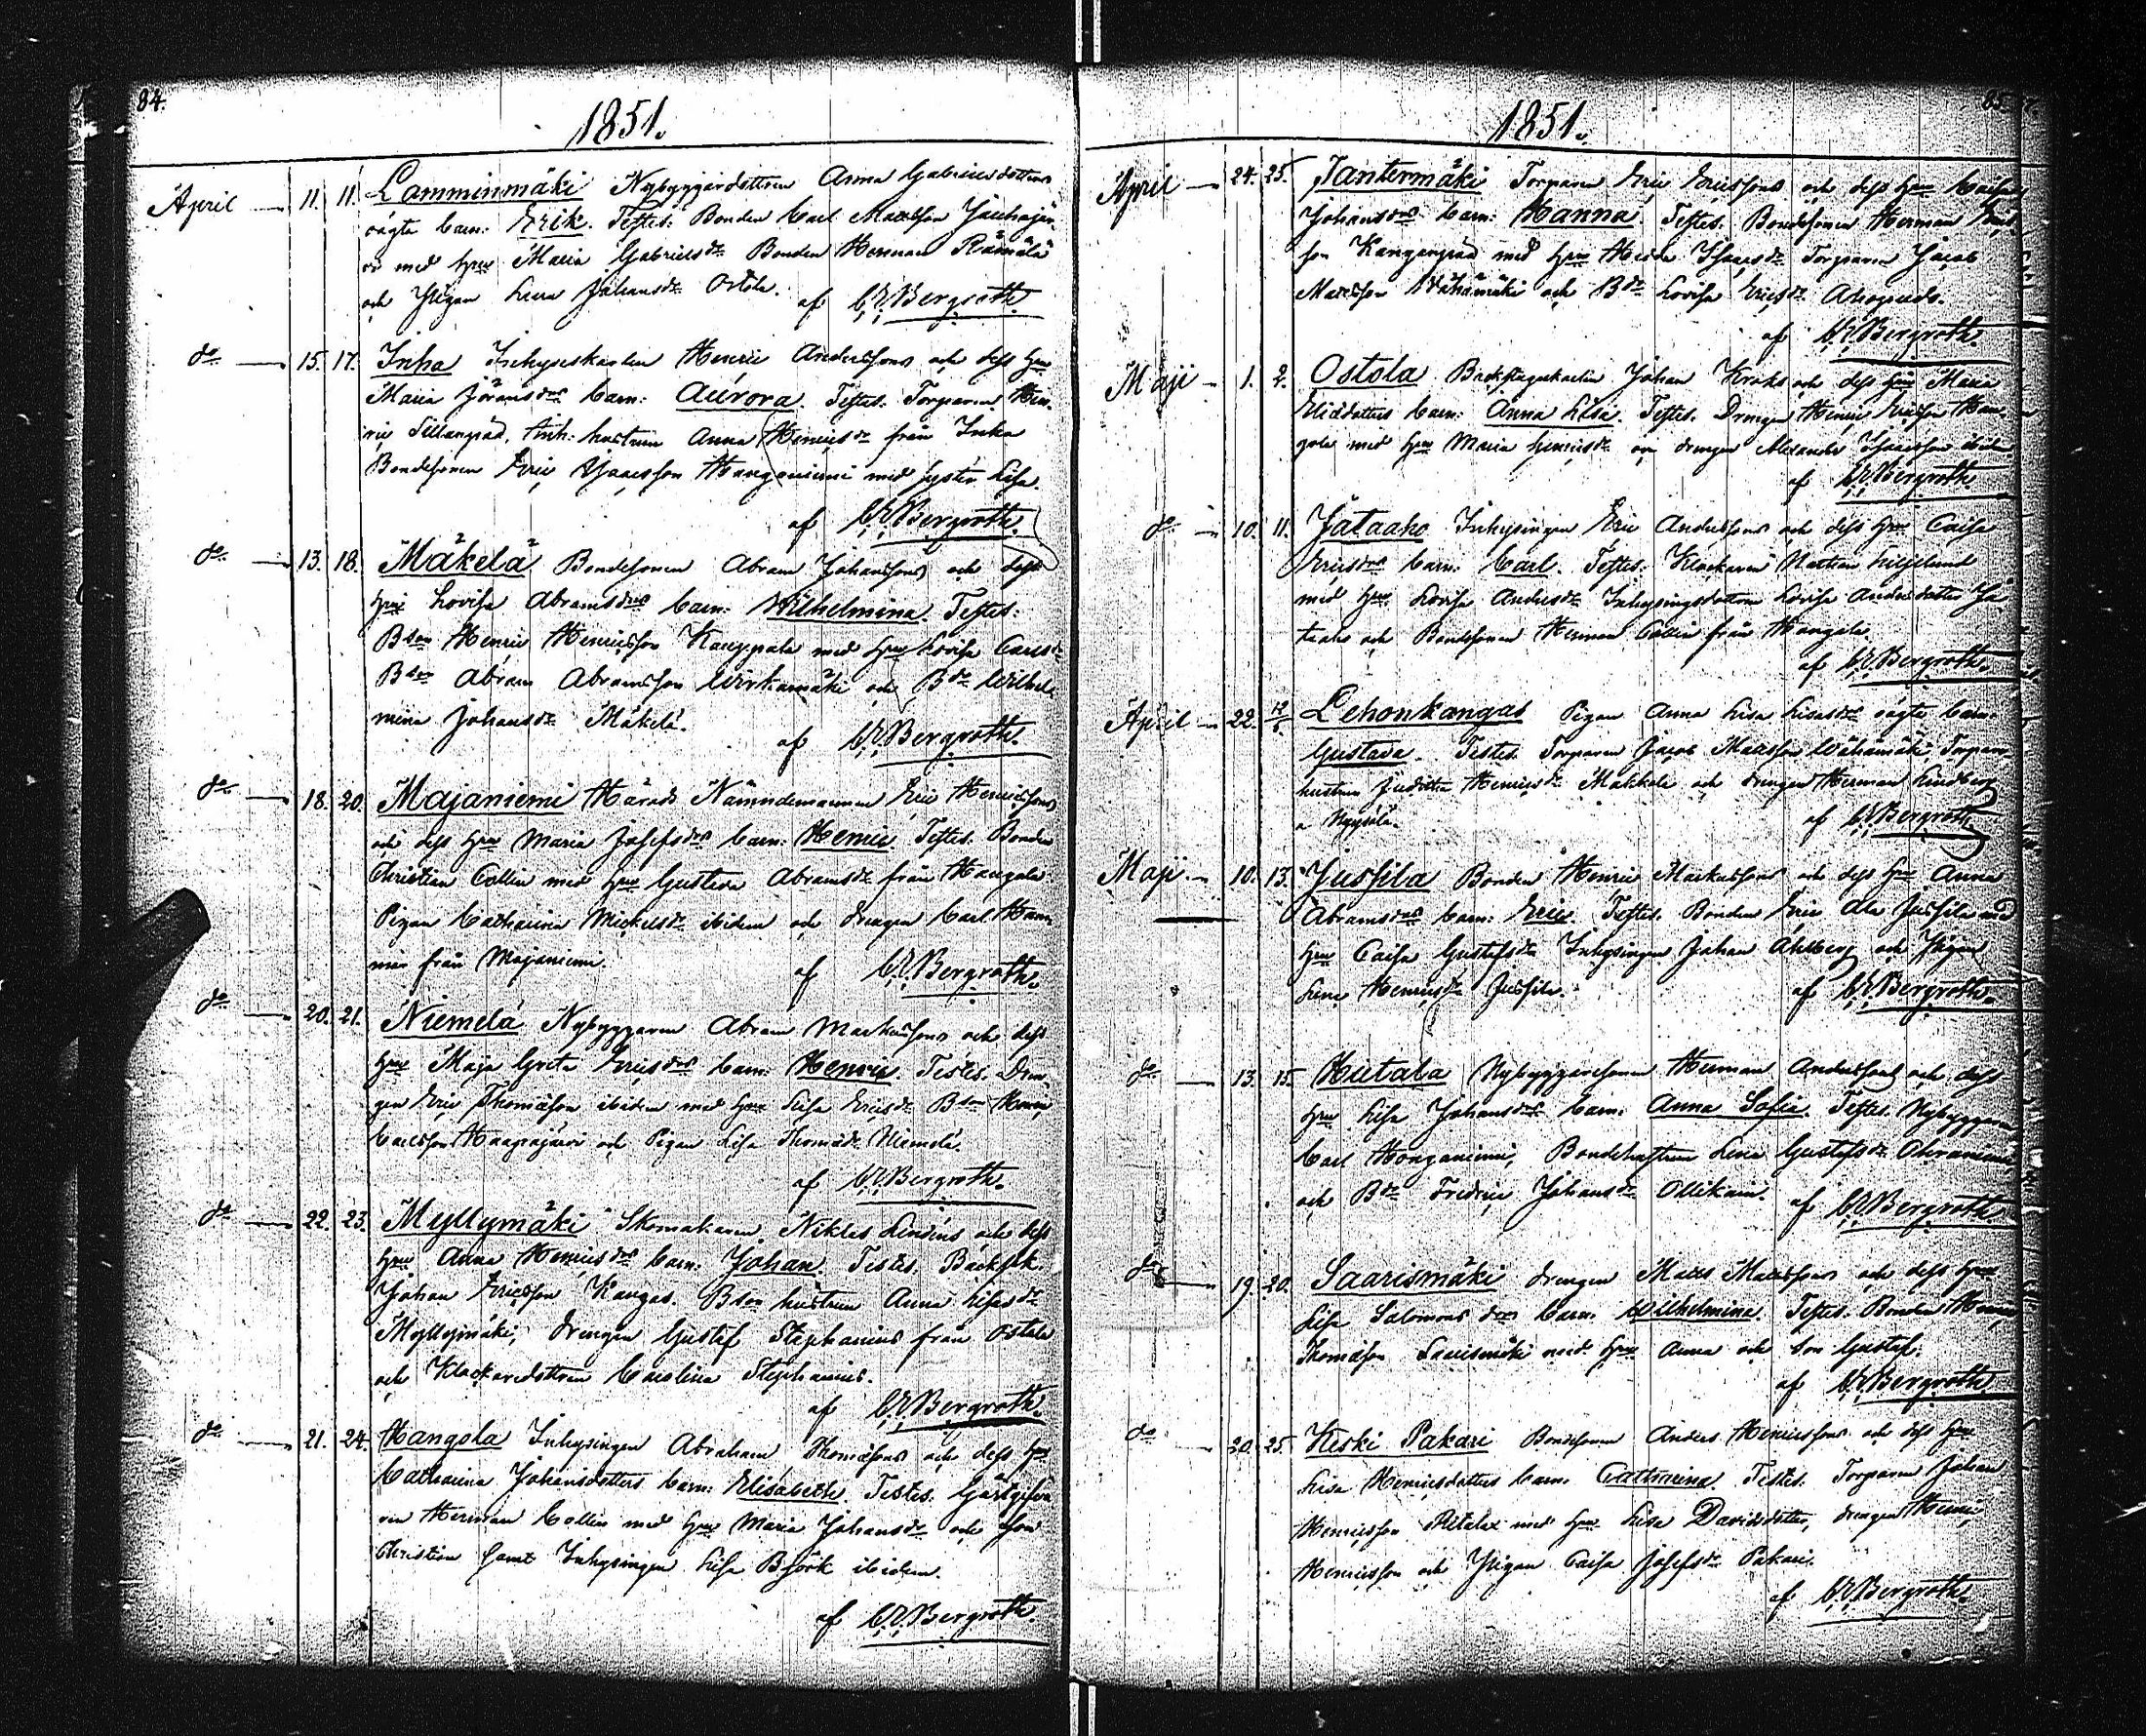 84.
1851.
April 11. 11. Lamminmäki Nybyggardottren Anna Gabrielsdotters
oägta barn: Erik. Testes: Bonden Carl Mattsson
med hru Maria Gabrielsdr Bonden Herman Rämälä
och Pigan Lena Johansdr Ostola.
af C.E. Bergroth.
do 15. 17. Inha Inhyseskarlen Henric Anderssons och dess hru
Maria Jöransdrs barn: Aurora. Testes: Torparen Hen-
ric Sillanpää, Inh: hustrun Anna Henricsdr från Inha
Bondesonen Eric Isaacsson Hanganiemi med syster Lisa.
af C.E. Bergroth.
do 13. 18. Mäkelä Bondesonen Abram Johanssons och dess
hru Lovisa Abramsdrs barn: Wilhelmina. Testes:
Bson Henric Henricsson med hru Lovisa Carlsdr
Bson Abram Abramsson Wirkamäki och Bdr Wilhel-
mina Johansdr Mäkelä.
af C.E. Bergroth.
do 18. 20. Majaniemi Härads Nämndemannen Eric Henricssons
och dess hru Maria Josefsdrs barn: Henric. Testes: Bonden
Christian Collin med hru Gustava Abramsdr från Hangola
Pigan Catharina Mickelsdr ibidem och drengen Carl
från Majaniemi.
af C.E. Bergroth.
do 20. 21. Niemelä Nybyggaren Abram Markussons och dess
hru Maja Greta Ericsdrs barn: Henric. Testes: Dren-
gen Eric Thomasson ibidem med hru Lisa Ericsdr Bson
Carlsson Haapajärvi och Pigan Lisa Thomasdr Niemelä.
af C.E. Bergroth.
do 22. 23. Myllymäki Skomakaren Niklas Lindéns och dess
hru Anna Henricsdrs barn: Johan. Testes: Backstk.
Johan Ericsson Kangas. Bson hustrun Anna Lisasdr
Myllymäki, drengen Gustaf Stephanius från Ostola
och Klockaredottren Carolina Stephanius.
af C.E. Bergroth.
do 21. 24. Hangola Inhysingen Abraham Thomassons och dess hru
Catharina Johansdotters barn: Elisabeth. Testes: Gästgifva-
ren Herman Collin med hru Maria Johansdr och son
Christian samt Inhysingen Lisa Björk ibidem.
af C.E. Bergroth.
85.
1851.
April 24. 25. Jantermäki Torparen Eric Ericssons och dess hru Caisa
Johansdrs barn: Hanna. Testes: Bondesonen Herman
son Kangaspää med hru Hedda Isaacsdr Torparen Jacob
Mattsson Wähämäki och Bdr Lovisa Ericsdr
af C.E. Bergroth.
Maji 1. 2. Ostola Backstugukarlen Johan Kroks och dess hru Maria
Eliædotters barn: Anna Lisa. Testes: Drengen Henric Ericsson Han-
gola med hru Maria Henricsdr och drengen Alexander Isaacsson ibidem
af C.E. Bergroth.
do 10. 11. Jätaaho Inhysingen Eric Anderssons och dess hru Caisa
Ericsdrs barn: Carl. Testes: Klockaren Nathan Liljelund
med hru Lovisa Andersdr Inhysingsdottren Lovisa Andersdotter Jä-
taaho och Bondesonen Herman Collin från Hangola.
af C.E. Bergroth.
April 22. Lehonkangas Pigan Anna Lisa Lisasdrs oägta barn:
Gustava. Testes: Torparen Jacob Mattsson Wähämäki, Torpare-
hustrun Judith Henricsdr Makkola och drengen Herman Lindberg
af C.E. Bergroth.
Maji 10. 13. Jussila Bonden Henric Markussons och dess hru Anna
Abramsdrs barn: Eric. Testes: Bonden Eric Ala Jussila med
hru Caisa Gustafsdr Inhysingen Johan Ahlberg och Pigan
Lena Henricsdr Jussila.
af C.E. Bergroth.
do 13. 15. Hietala Nybyggaresonen Herman Anderssons och dess
hru Lisa Johansdrs barn: Anna Sofia. Testes: Nybyggaren
Carl Honganiemi, Bondehustrun Lena Gustafsdr
och Bdr Fredrica Johansdr Ollikain.
af C.E. Bergroth.
do 19. 20. Saarismäki drengen Matts Mattssons och dess hru
Lisa Salomonsdrs barn: Wilhelmina. Testes: Bonden
Thomasson Saarismäki med hru Anna och son Gustaf.
af C.E. Bergroth.
do 20. 25. Keski Pakari Bondesonen Anders Henricssons och dess hru
Lisa Henricsdotters barn: Cathrina. Testes: Torparen Johan
Henricsson med hru Lisa Davidsdotter, drengen Henric
Henricsson och Pigan Caisa Josefsdr Pakari.
af C.E. Bergroth.